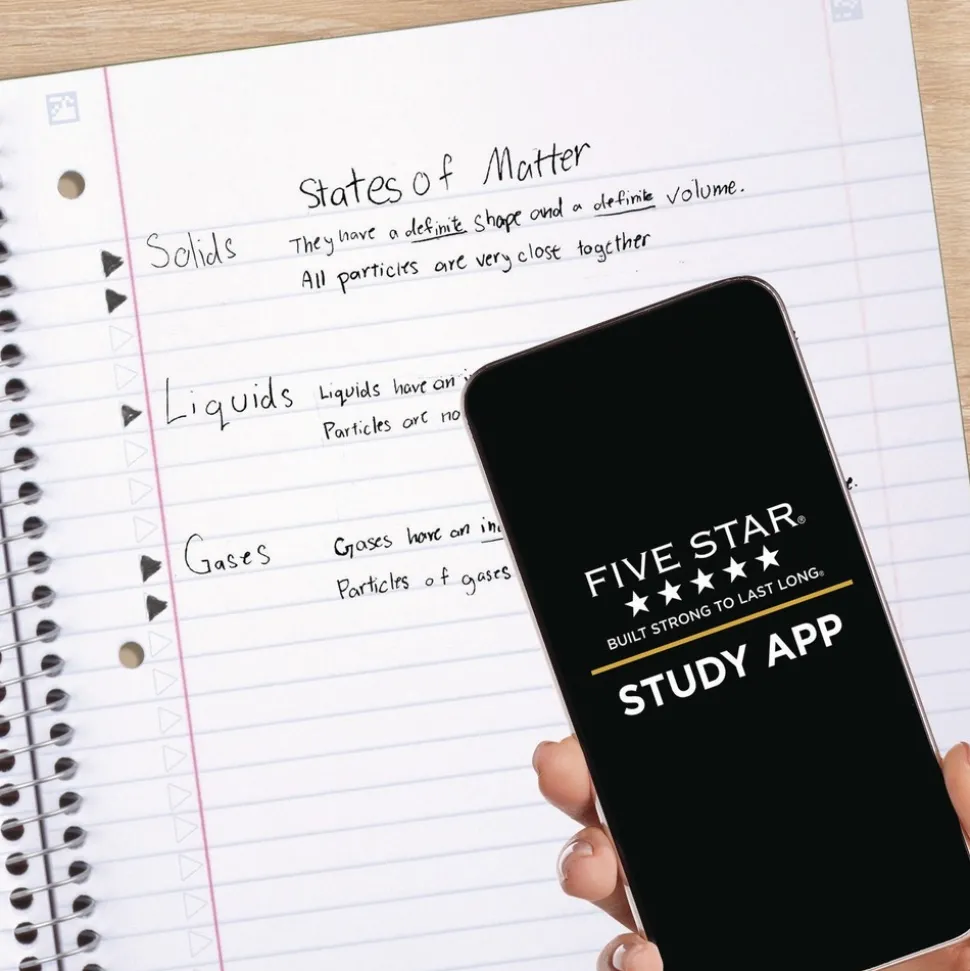 States of Matter
Solids They have a definite shape and a definite volume.
All particles are very clost together
Liquids Liquids have an
Particles are no
Gases Gases have an in
Particles of gases
e.
FIVE STAR®
BUILT STRONG TO LAST LONG®
STUDY APP